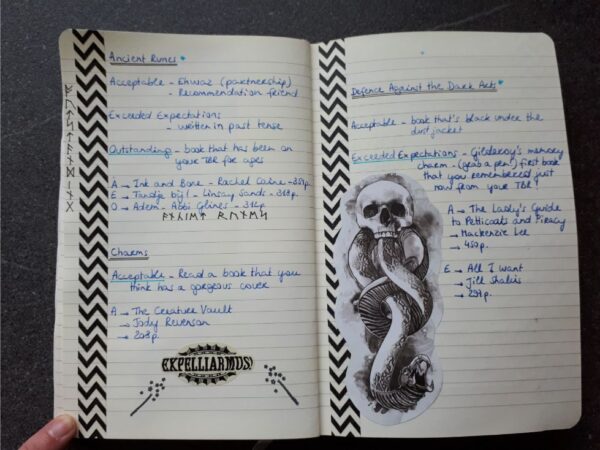 Ancient Runes
Acceptable - Ehwaz (partnership)
- Recommendation friend
Exceeded Expectations
- written in past tense
Outstanding - book that has been on
your TBR for ages
A → Ink and Bone - Rachel Caine - 354p.
E → Tandje bijl - Linsay Sands - 318p.
O → Adem - Abbi Glines - 314p
Charms
Acceptable - Read a book that you
think has a gorgeous cover
A → The Creature Vault
→ Jody Revenson
→ 208p.
EXPELLIARMUS!
Defence Against the Dark Arts
Acceptable - book that's black under the
dust jacket
Exceeded Expectations - Gilderoy's memory
charm - (grab a pen!) first book
that you remembered just
now from your TBR!
A → The Lady's Guide
to Petticoats and Piracy
→ Mackenzie Lee
→ 450p.
E → All I want
→ Jill Shalvis
→ 294p.